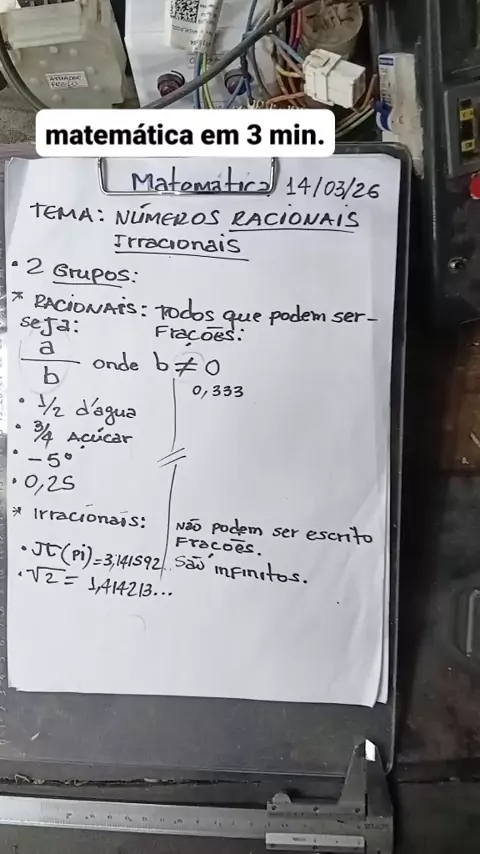 ATUADOR
FREIO
matemática em 3 min.
Matemática 14/03/26
TEMA: NÚMEROS RACIONAIS
Irracionais
• 2 Grupos:
* RACIONAIS: Todos que podem ser-
seja: Frações:
a
b
onde b ≠ 0
0,333
• 1/2 d'água
• 3/4 Açúcar
• -5°
• 0,25
* Irracionais:
Não podem ser escrito
Fracões.
São infinitos.
• π (Pi) = 3,141592...
• √2 = 1,414213...